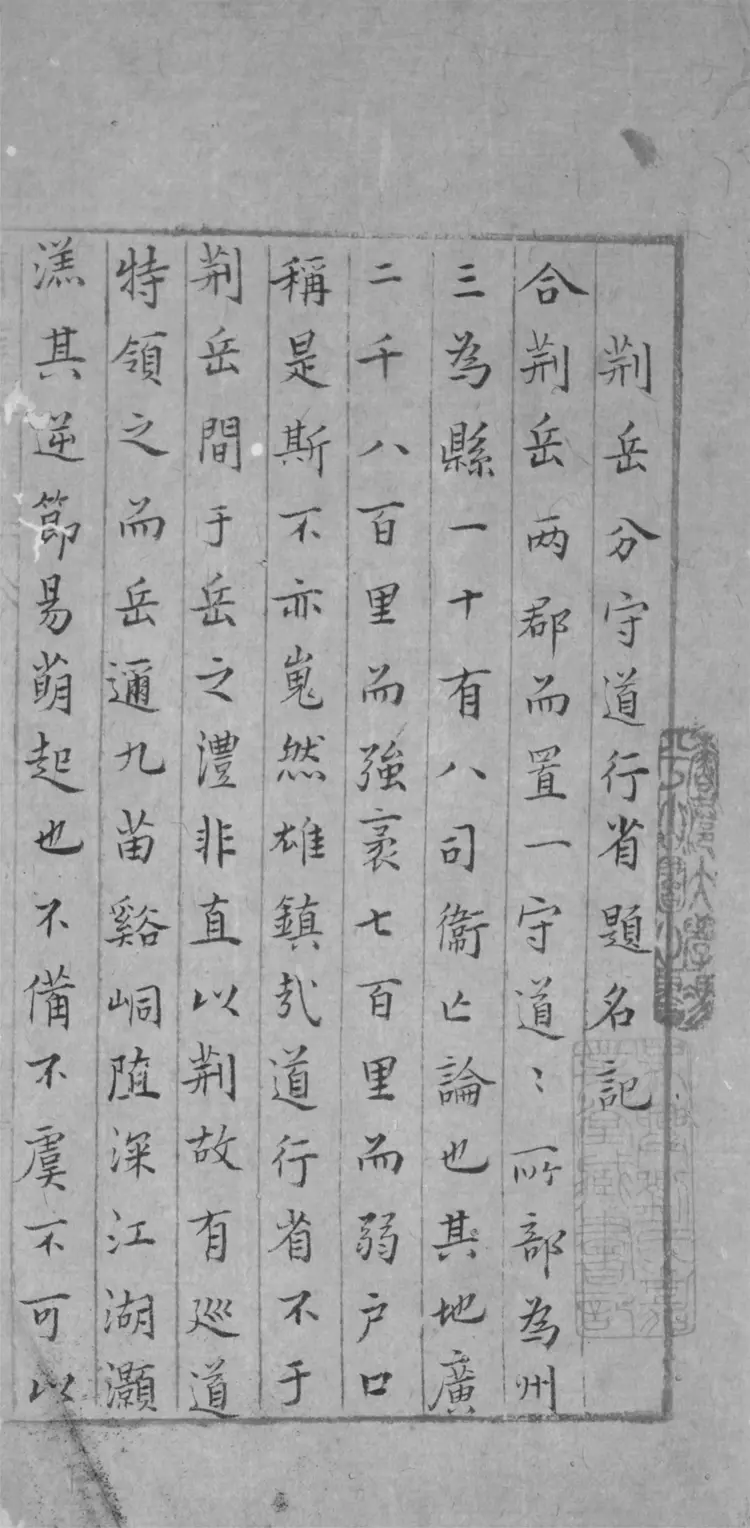 荆岳分守道行省題名記
合荆岳两郡而置一守道〻所部為州
三為縣一十有八司衞亡論也其地廣
二千八百里而強袤七百里而弱户口
稱是斯不亦嵬然雄鎮㦲道行省不于
荆岳間于岳之澧非直以荆故有廵道
特領之而岳邇九苗谿峒陁深江湖灝
漾其逆節易萌起也不備不虞不可以